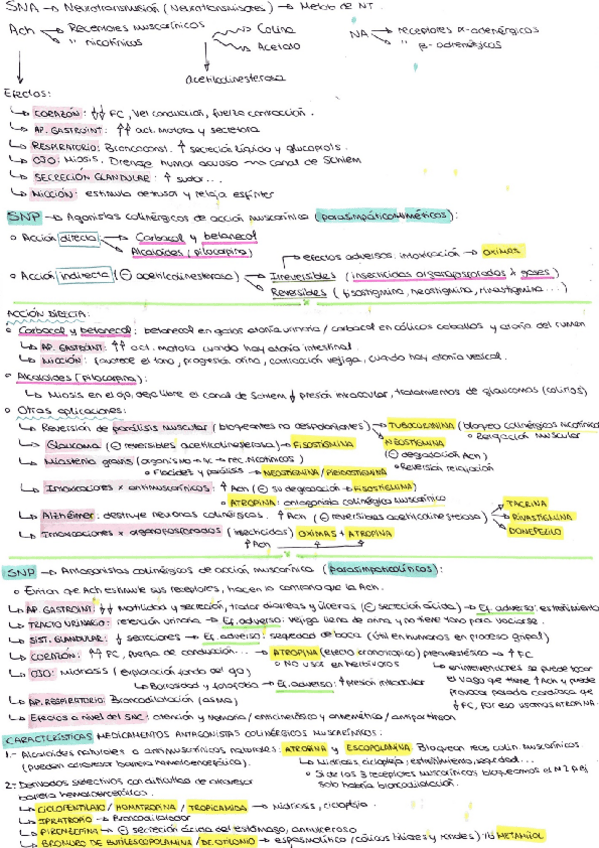 SNA → Neurotransmisión (Neurotransmisores) → Metab de NT.
Ach → Receptores muscarínicos → Colina NA → receptores α-adrenérgicos
↳ " nicotínicos → Acetato ↳ " β-adrenérgicos
acetilcolinesterasa
Efectos:
↳ CORAZÓN: ↓↓ FC, vel conducción, fuerza contracción.
↳ AP. GASTROINT: ↑↑ act. motora y secretora
↳ RESPIRATORIO: Broncoconst. ↑ secreción líquida y glucoprots.
↳ OJO: Miosis. Drenaje humor acuoso → canal de Schlem
↳ SECRECIÓN GLANDULAR: ↑ sudor...
↳ MICCIÓN: estimula detrusor y relaja esfínter
SNP → Agonistas colinérgicos de acción muscarínica (parasimpaticomiméticos):
→ efectos adversos, intoxicación → OXIMAS
o Acción directa → Carbacol y betanecol
→ Alcaloides (pilocarpina)
o Acción indirecta (⊖ acetilcolinesterasa) → Irreversibles (insecticidas organofosforados y gases)
→ Reversibles (fisostigmina, neostigmina, rivastigmina...)
ACCIÓN DIRECTA:
o Carbacol y betanecol: betanecol en gatos atonía urinaria / carbacol en cólicos caballos y atonía del rumen
↳ AP. GASTROINT: ↑↑ act. motora cuando hay atonía intestinal.
↳ MICCIÓN: favorece el tono, progresión orina, contracción vejiga, cuando hay atonía vesical.
o Alcaloides (Pilocarpina):
↳ Miosis en el ojo, deja libre el canal de Schlem ↓ presión intraocular, tratamientos de glaucomas (colirios)
o Otras aplicaciones:
↳ Reversión de parálisis muscular (bloqueantes no despolarizantes) → TUBOCURARINA (bloqueo colinérgicos nicotínicos)
o Relajación muscular
↳ Glaucoma (⊖ reversibles acetilcolinesterasa) → FISOSTIGMINA NEOSTIGMINA
(⊖ degradación Ach)
↳ Miastenia gravis (organismo → rec. nicotínicos) o Reversión relajación
o Flacidez y parálisis → NEOSTIGMINA / PIRIDOSTIGMINA
↳ Intoxicaciones x antimuscarínicos: ↑ Ach (⊖ su degradación → FISOSTIGMINA)
o ATROPINA: antagonista colinérgico muscarínico
↳ Alzheimer: destruye neuronas colinérgicas. ↑ Ach (⊖ reversibles acetilcolinesterasa) → TACRINA
→ RIVASTIGMINA
→ DONEPECILO
↳ Intoxicaciones x organofosforados (insecticidas) OXIMAS + ATROPINA
↑ Ach
SNP → Antagonistas colinérgicos de acción muscarínica (parasimpaticolíticos):
o Evitan que Ach estimule sus receptores, hacen lo contrario que la Ach.
↳ AP. GASTROINT: ↓↓ motilidad y secreción, tratar diarreas y úlceras (⊖ secreción ácida) → Ef. adverso: estreñimiento
↳ TRACTO URINARIO: retención urinaria → Ef. adverso: vejiga llena de orina y no tiene tono para vaciarse.
↳ SIST. GLANDULAR: ↓ secreciones → Ef. adverso: sequedad de boca (útil en humanos en proceso gripal)
↳ CORAZÓN: ↑↑ FC, fuerza de conducción... → ATROPINA (efecto cronotropico) preanestésico → ↑ FC
o No usar en herbívoros
↳ OJO: Midriasis (exploración fondo del ojo) o en intervenciones se puede tocar
↳ Borrosidad y fotofobia → Ef. adverso: ↑ presión intraocular el vago que tiene ↑ Ach y puede
↳ AP. RESPIRATORIO: Broncodilatación (asma) provocar parada cardiaca que
↳ Efectos a nivel del SNC: atención y memoria / anticinetósico y antiemético / antiparkinson ↓ FC, por eso usamos ATROPINA.
CARACTERÍSTICAS MEDICAMENTOS ANTAGONISTAS COLINÉRGICOS MUSCARÍNICOS:
1.- Alcaloides naturales o antimuscarínicos naturales: ATROPINA y ESCOPOLAMINA. Bloquean recs colin. muscarínicos
(pueden atravesar barrera hematoencefálica). ↳ Midriasis, cicloplejia, estreñimiento, sequedad...
o Si de los 3 receptores muscarínicos bloqueamos el M2
2.- Derivados selectivos con dificultad de atravesar solo habría broncodilatación.
barrera hematoencefálica.
↳ CICLOPENTOLATO / HOMATROPINA / TROPICAMIDA → Midriasis, cicloplejia
↳ IPRATROPIO → Broncodilatador
↳ PIRENZEPINA → ⊖ secreción ácida del estómago, antiulceroso
↳ BROMURO DE BUTILESCOPOLAMINA / DE OTILONIO → espasmolítico (cólicos biliares y renales) METAMIZOL